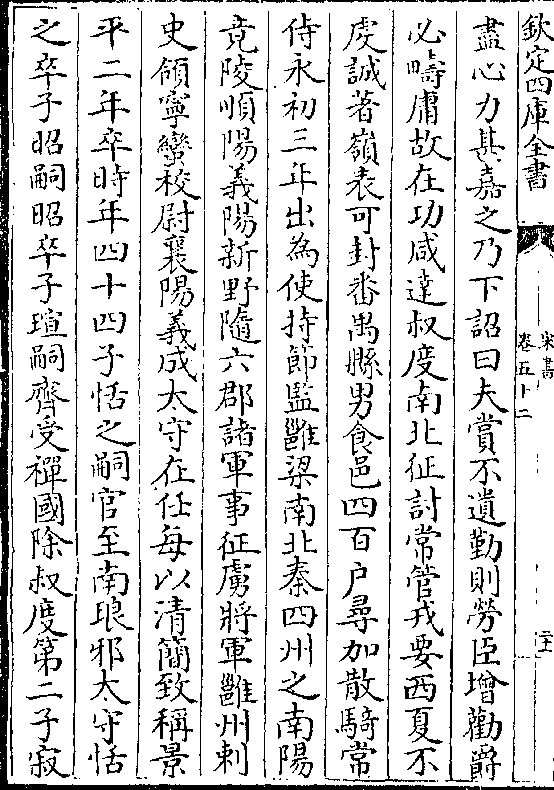 欽定四庫全書
宋書
卷五十二
二十
盡心力甚嘉之乃下詔曰夫賞不遺勤則勞臣增勸爵
必疇庸故在功咸達叔度南北征討常管戎要西夏不
虔誠著嶺表可封番禺縣男食邑四百户尋加散騎常
侍永初三年出為使持節監雝梁南北秦四州之南陽
竟陵順陽義陽新野隨六郡諸軍事征虜將軍雝州刺
史領寧蠻校尉襄陽義成太守在任每以清簡致稱景
平二年卒時年四十四子恬之嗣官至南琅邪太守恬
之卒子昭嗣昭卒子瑄嗣齊受禪國除叔度第二子寂